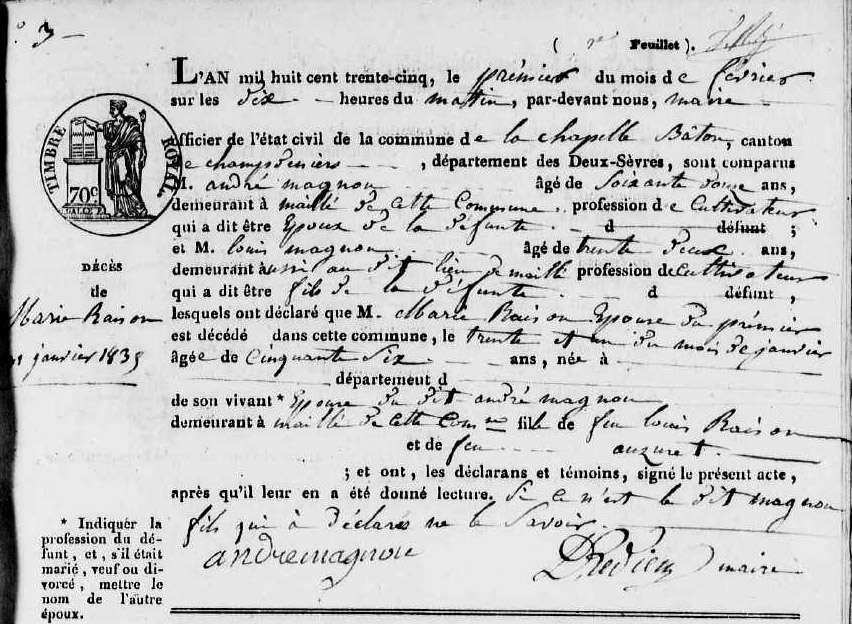 3
( re Feuillet ).
L'AN mil huit cent trente-cinq, le prémier du mois de février
sur les dix heures du matin, par-devant nous, maire
officier de l'état civil de la commune de la chapelle Bâton, canton
de champdeniers, département des Deux-Sèvres, sont comparus
M. andré magnou âgé de Soixante douze ans,
demeurant à maillé de cette Commune profession de Cultivateur
qui a dit être Epoux de la défunte d défunt ;
et M. louis magnou âgé de trente deux ans,
demeurant aussi au dit lieu de maillé profession de Cultivateur
qui a dit être fils de la défunte d défunt,
lesquels ont déclaré que M. Marie Raison Epouse du prémier
est décédé dans cette commune, le trente et un du mois de janvier
âgée de Cinquante Six ans, née à
département d
de son vivant * Epouse du dit andré magnou
demeurant à maillé de cette Comne fille de feu louis Raison
et de feu auzuret
; et ont, les déclarans et témoins, signé le présent acte,
après qu'il leur en a été donné lecture. Si ce n'est le dit magnou
fils qui à déclaré ne le Savoir.
andremagnou maire
TIMBRE ROYAL
70c
DÉCÈS
de
Marie Raison
janvier 1835
* Indiquer la
profession du dé-
funt, et, s'il était
marié, veuf ou di-
vorcé, mettre le
nom de l'autre
époux.